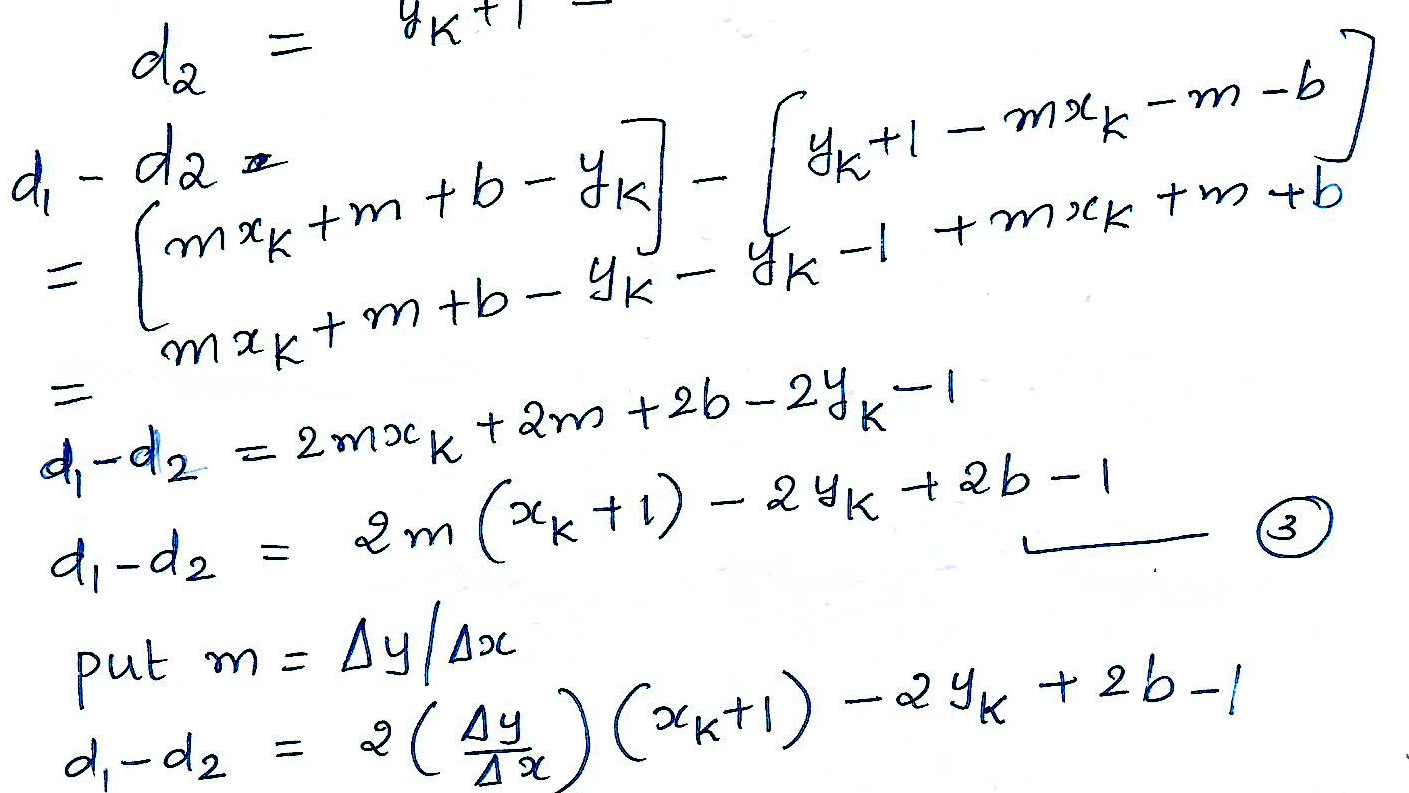 d₂ = yₖ+1 –
d₁ - d₂ =
= [mxₖ + m + b - yₖ] - [yₖ+1 - mxₖ - m - b]
= mxₖ + m + b - yₖ - yₖ - 1 + mxₖ + m + b
d₁ - d₂ = 2mxₖ + 2m + 2b - 2yₖ - 1
d₁ - d₂ = 2m(xₖ+1) - 2yₖ + 2b - 1 — ③
put m = Δy/Δx
d₁ - d₂ = 2(Δy/Δx)(xₖ+1) - 2yₖ + 2b - 1